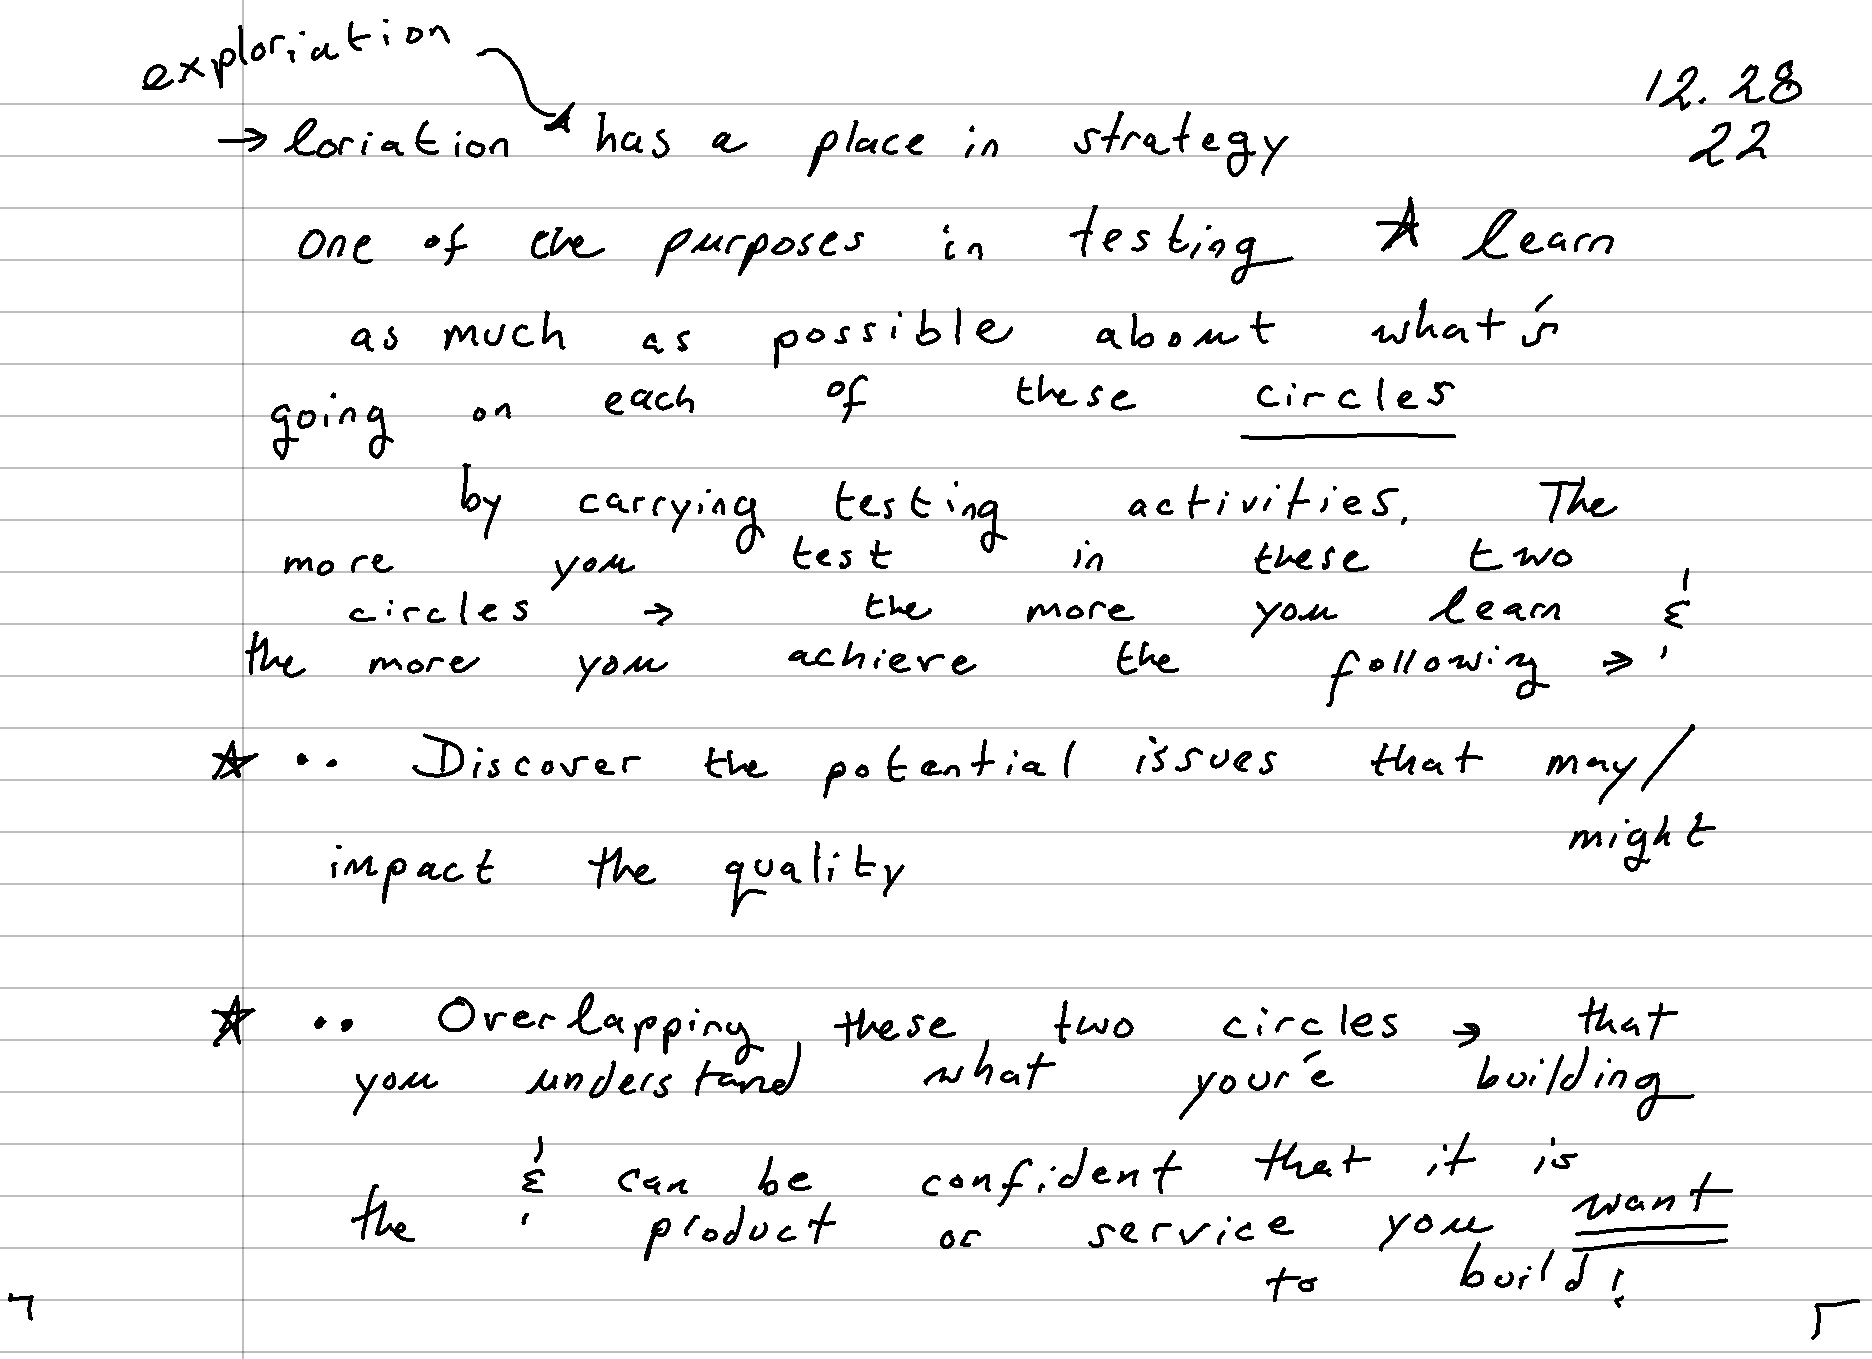 exploriation
12.28
22
→ loriation has a place in strategy
one of the purposes in testing ☆ learn
as much as possible about what's
going on each of these circles
by carrying testing activities. The
more you test in these two
circles → the more you learn &
the more you achieve the following →
☆ .. Discover the potential issues that may/
might
impact the quality
☆ .. Overlapping these two circles → that
you understand what your'e building
& can be confident that it is
the product or service you want
to build!